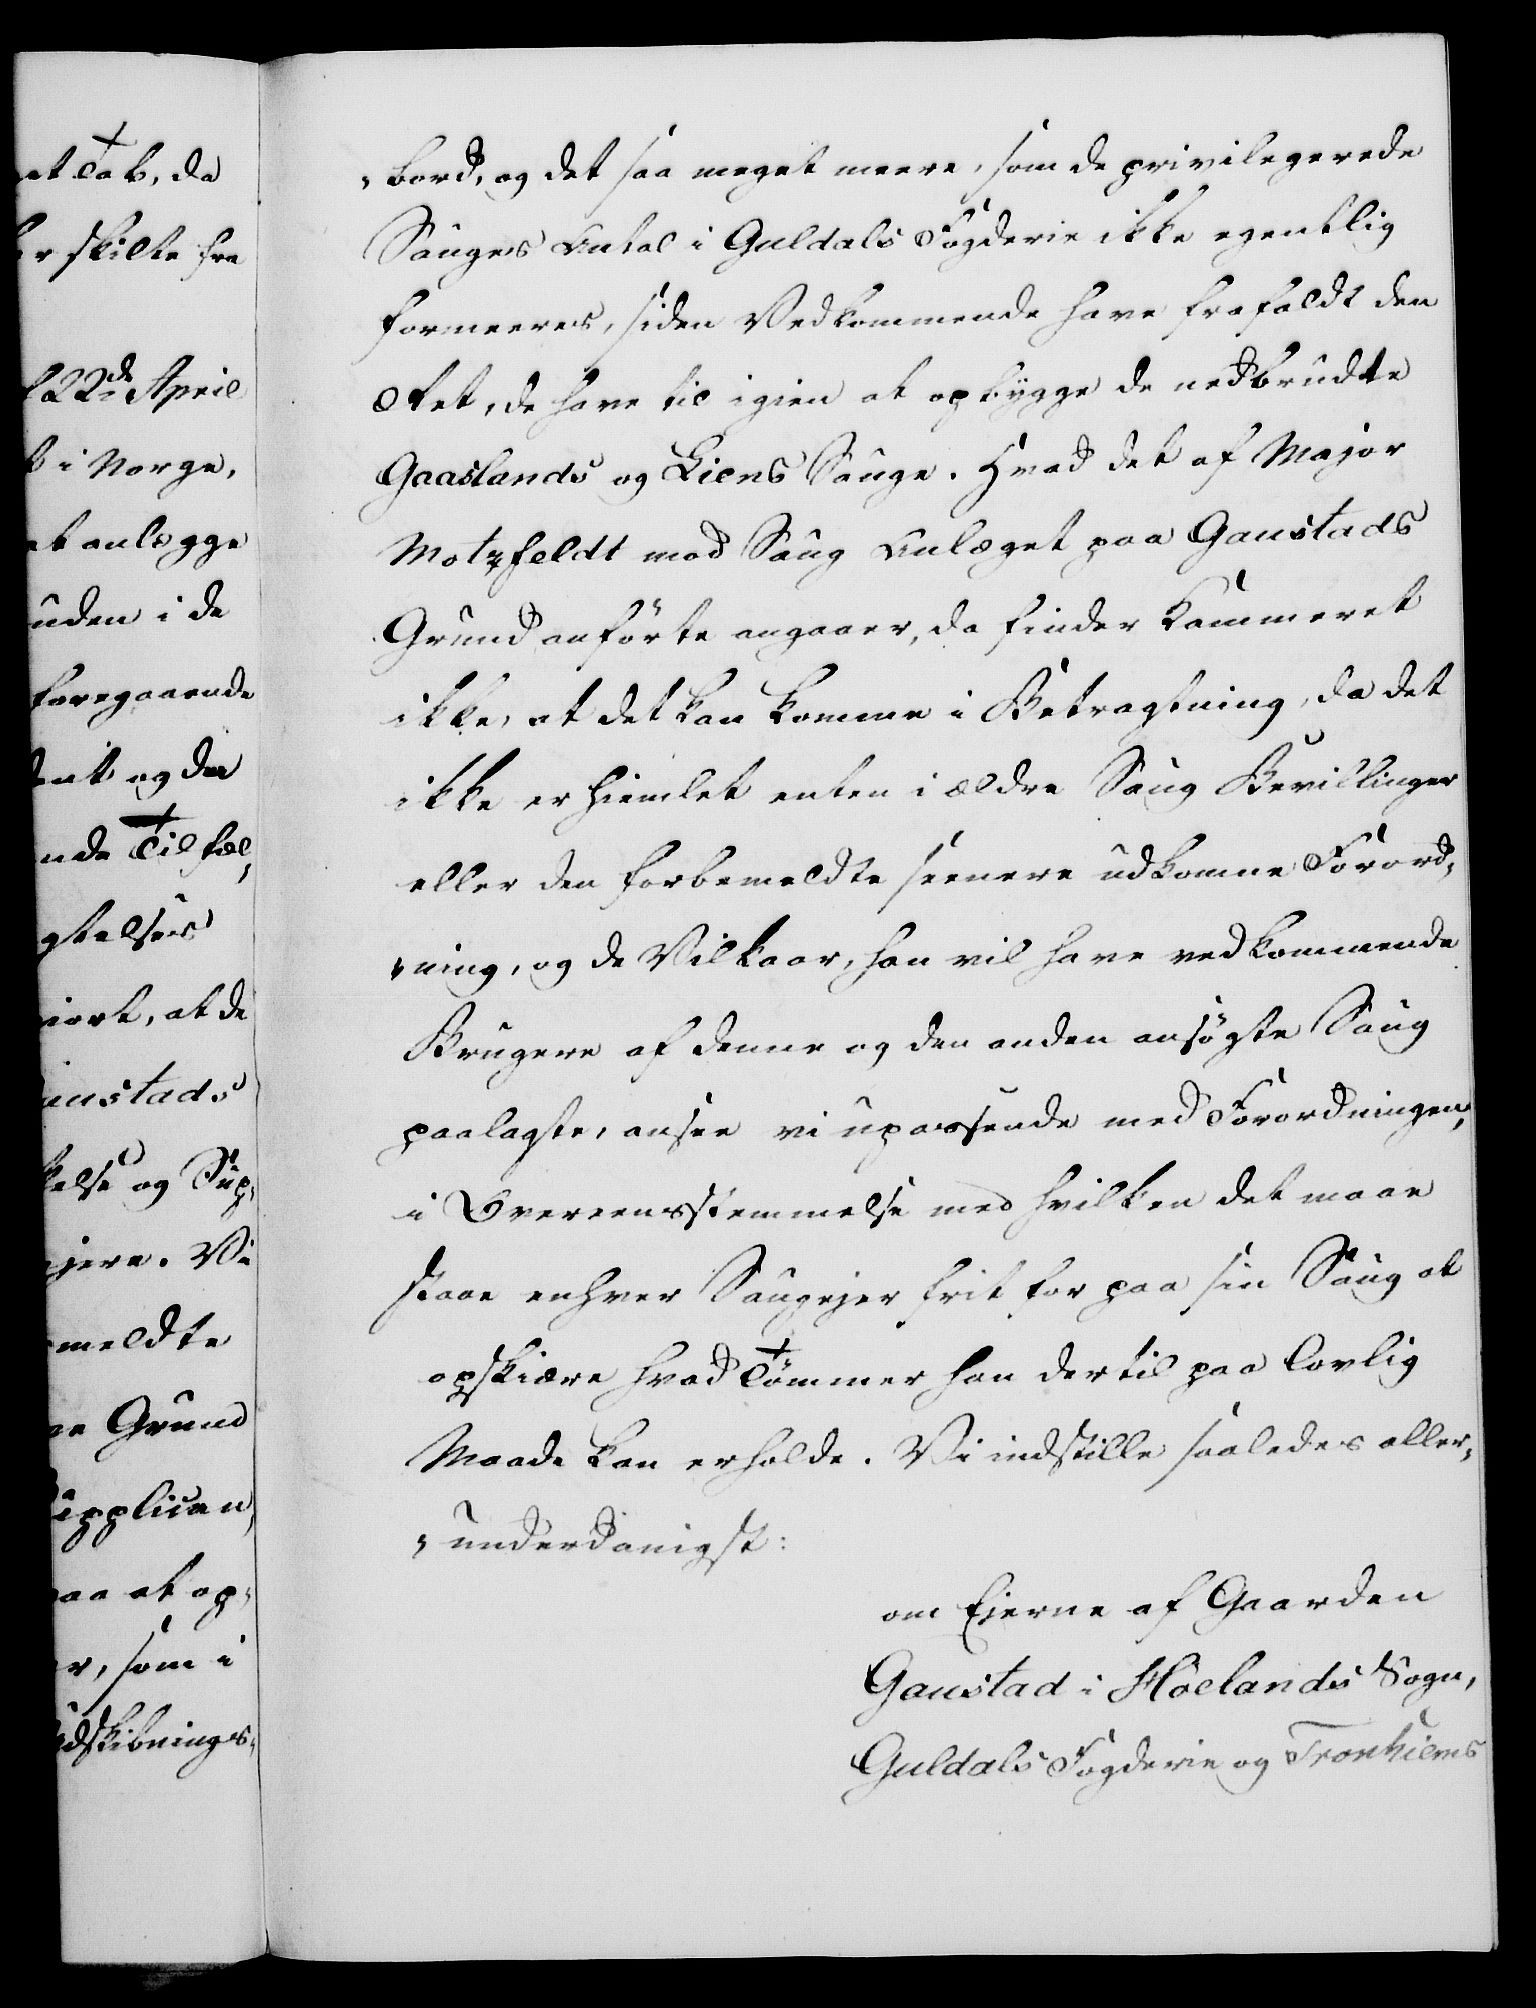 et Tab, da
er skilte fra
22de April
i Norge,
at anlægge
uden i de
foregaaende
og der
nde Tilfæl„
gtelses
iort, at de
ustads
else og Sup„
jere. Vi
meldte
Grund
upplican„
aa at op„
r, som i
udskibnings„
„bord, og det saa meget meere, som de privilegerede
Sauges Antal i Guldals Fogderie ikke egentlig
formeeres, siden Vedkommende have frafaldt den
Ret, de have til igien at opbygge de nedbrudte
Gaaslands og Liens Sauge. Hvad det af Major
Motzfeldt mod Saug Anlæget paa Gaustads
Grund anförte angaaer, da finder Kammeret
ikke, at det kan komme i Betragtning, da det
ikke er hiemlet enten i ældre Saug Bevillinger
eller den forbemeldte seenere udkomne Forord„
„ning, og de Vilkaar, han vil have vedkommende
Brugere af denne og den anden ansögte Saug
paalagte, ansee vi upassende med Forordningen,
i Overeensstemmelse med hvilken det maae
staae enhver Saugejer frit for paa sin Saug at
opskiære hvad Tömmer han dertil paa lovlig
Maade kan erholde. Vi indstille saaledes aller„
„underdanigst:
om Ejerne af Gaarden
Gaustad i Hölands Sogn,
Guldals Fogderie og Tronhiems